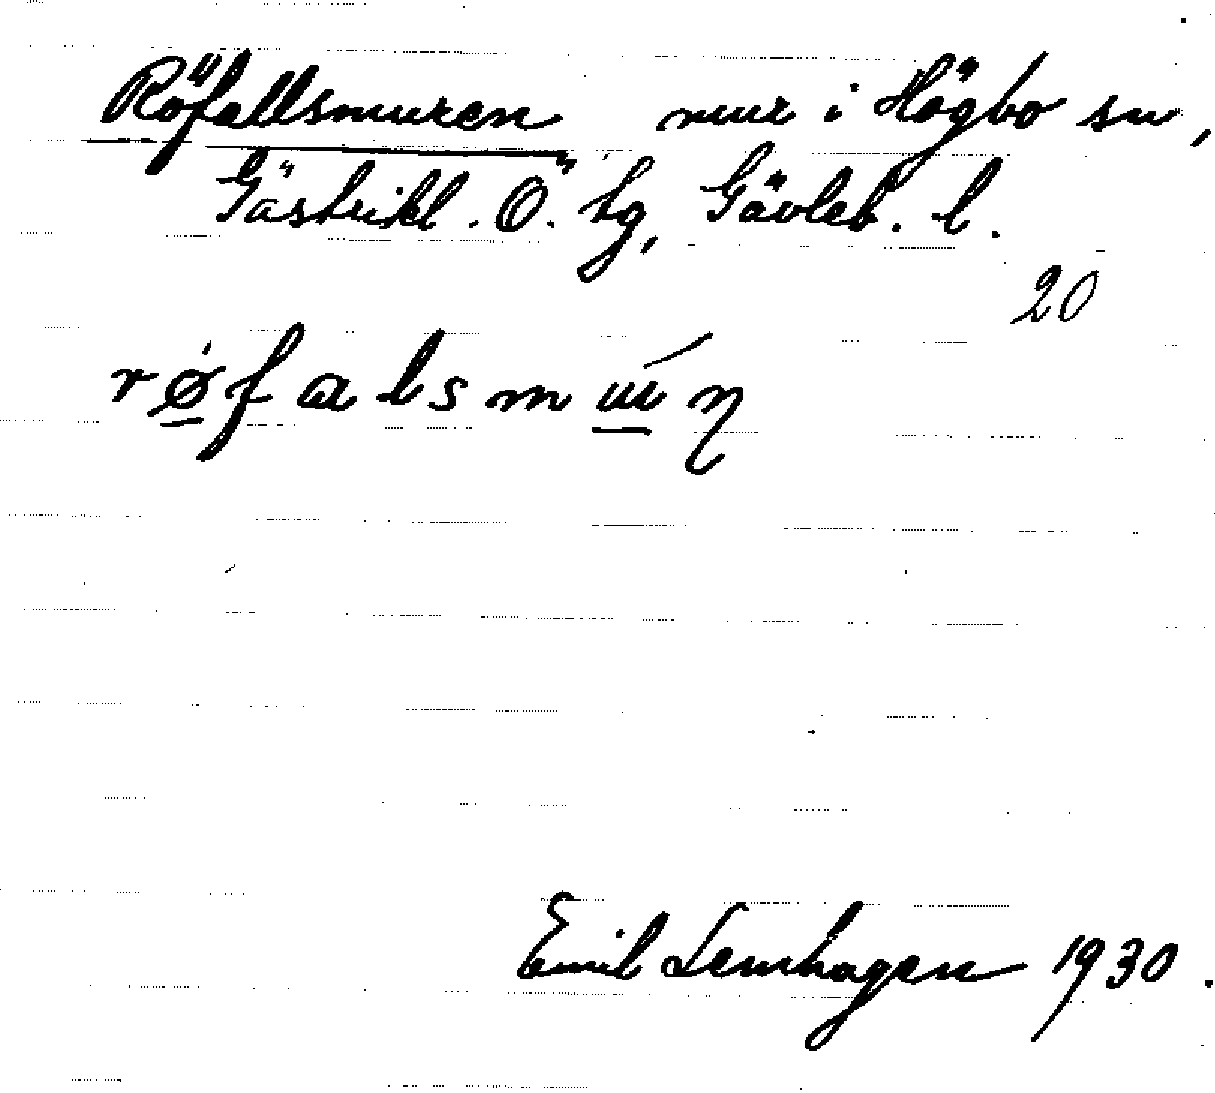 Röfallsmuren mur i Högbo sn,
Gästrikl. Ö. tg, Gävleb. l.
20
røfalsmɯ́ŋ
Emil Lemhagen 1930.